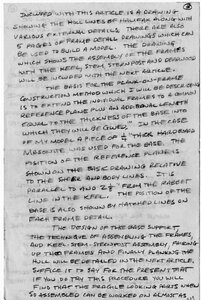 INCLUDED WITH THIS ARTICLE IS A DRAWING
SHOWING THE HULL LINES OF HALIFAX ALONG WITH
VARIOUS EXTERNAL DETAILS. THERE ARE ALSO
5 PAGES OF FRAME DETAIL DRAWINGS WHICH CAN
BE USED TO BUILD A MODEL. THE DRAWING
WHICH SHOWS THE ASSEMBLY OF THE FRAMES
WITH THE KEEL, STEM, STERNPOST AND DEADWOOD
WILL BE INCLUDED WITH THE NEXT ARTICLE.
THE BASIS FOR THE PLANK-ON-FRAME
CONSTRUCTION METHOD WHICH I WILL BE DESCRIBING
IS TO EXTEND THE INDIVIDUAL FRAMES TO A DESIGN
REFERENCE PLANE PLUS AN ADDITIONAL LENGTH
EQUAL TO THE THICKNESS OF THE BASE INTO
WHICH THEY WILL BE GLUED. IN THE CASE
OF MY MODEL A PIECE OF 1/4" THICK HARDBOARD
MASONITE WAS USED FOR THE BASE. THE
POSITION OF THE REFERENCE PLANE IS
SHOWN ON THE BASIC DRAWING RELATIVE
TO THE SHEER AND BODY LINES. IT IS
PARALLEL TO AND FROM THE RABBET
LINE IN THE KEEL. THE POSITION OF THE
BASE IS ALSO SHOWN BY HATCHED LINES ON
EACH FRAME DETAIL.
THE DESIGN OF THE BASE SUPPORT,
THE TECHNIQUE OF ASSEMBLING THE FRAMES,
AND KEEL-STEM-STERNPOST ASSEMBLY, FAIRING
UP THE FRAMES AND FINALLY PLANKING THE
HULL WILL BE DETAILED IN THE NEXT ARTICLE.
SUFFICE IT TO SAY FOR THE PRESENT THAT
IF YOU DO TRY THIS PROCEDURE YOU WILL
FIND THAT THE FRAGILE LOOKING PARTS WHEN
SO ASSEMBLED CAN BE WORKED ON ALMOST AS